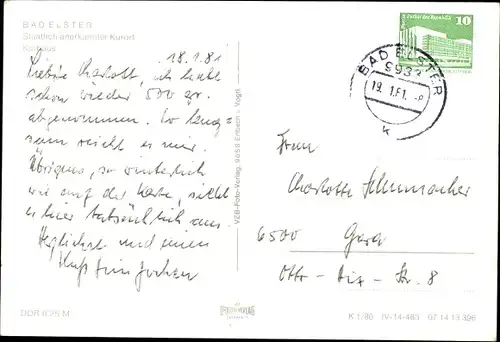 BAD ELSTER
Staatlich anerkannter Kurort
Kurhaus
18.1.81
Liebste Charlott, ich habe
schon wieder 500 gr.
abgenommen. So lang=
sam reicht es mir.
Übrigens, so winterlich
wie auf der Karte, sieht
es hier tatsächlich aus.
Herzlichst und einen
Kuß Dein Jochen
VEB-Foto-Verlag 9658 Erlbach i. Vogtl.
10
BAD ELSTER
9933
19.1.81
k
Frau
Charlotte Schumacher
6500 Gera
Otto-Dix-Str. 8
DDR 0,25 M
K 1/80 IV-14-483 07 14 13 396